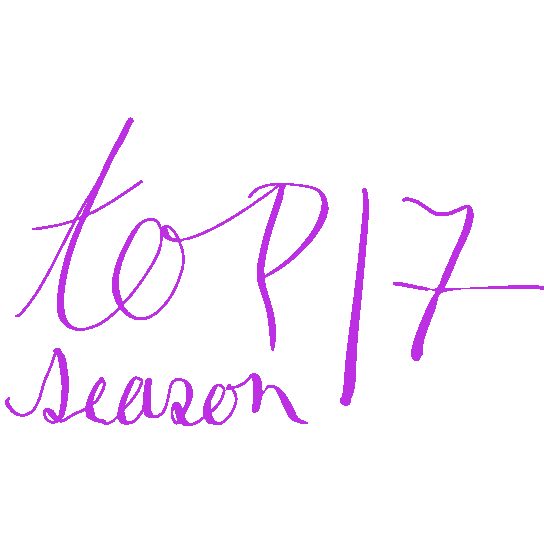 top 17
season